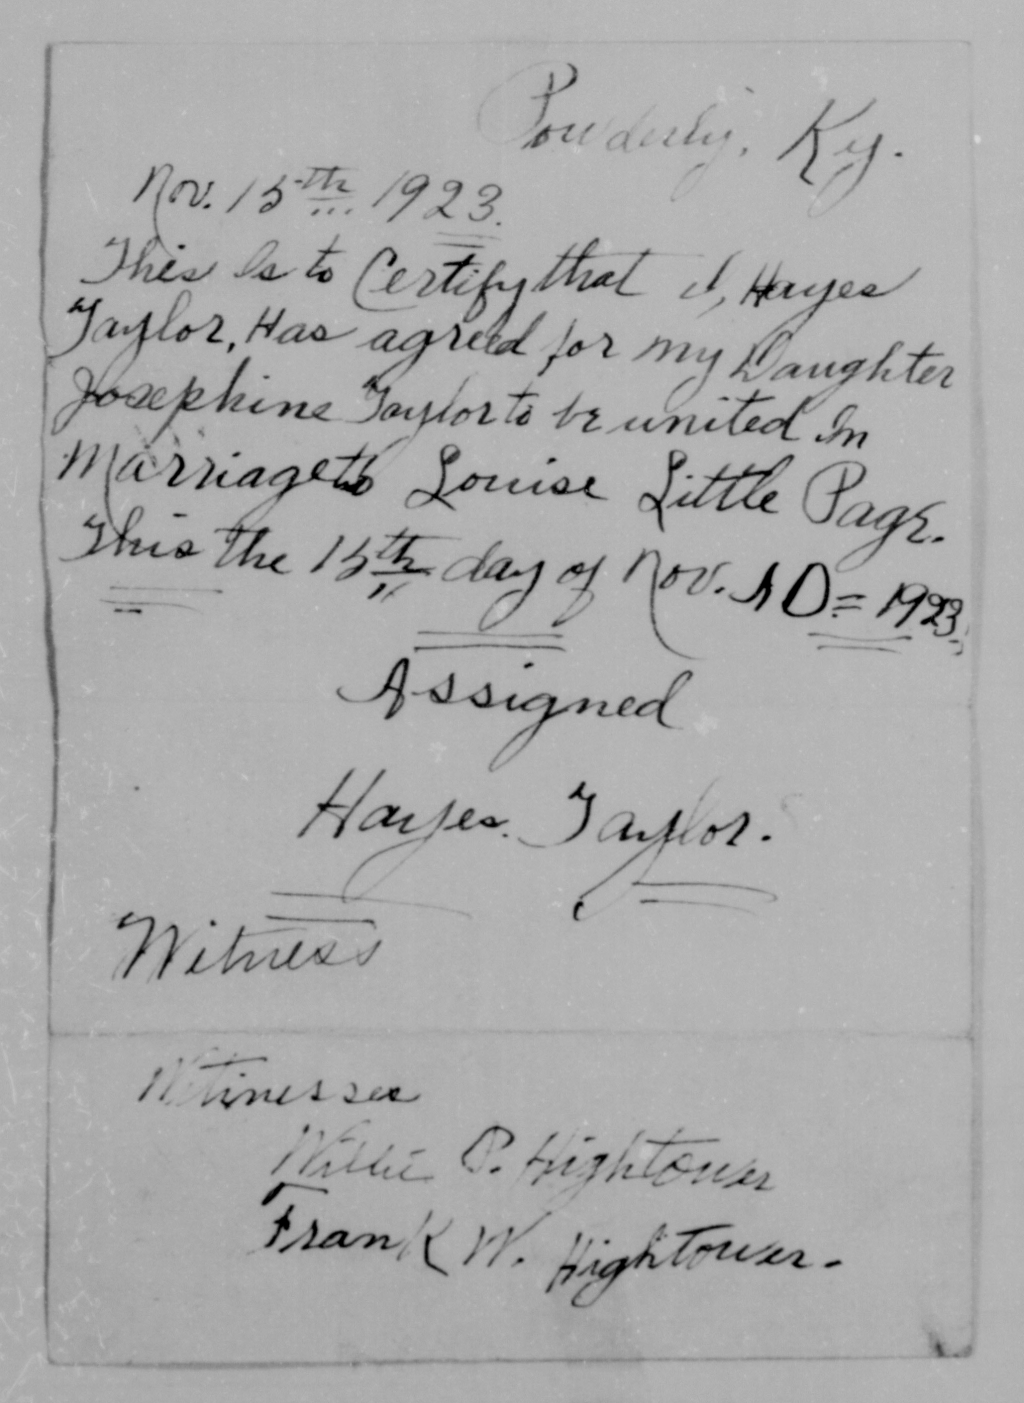 Powderly, Ky.
Nov. 15th 1923.
This Is to Certify that I, Hayes
Taylor, Has agreed for my Daughter
Josephine Taylor to be united In
Marriage to Louise Little Page.
This the 15th day of Nov. A D = 1923.
Assigned
Hayes. Taylor.
Witness
Witinesses
Willie P. Hightower
Frank W. Hightower.